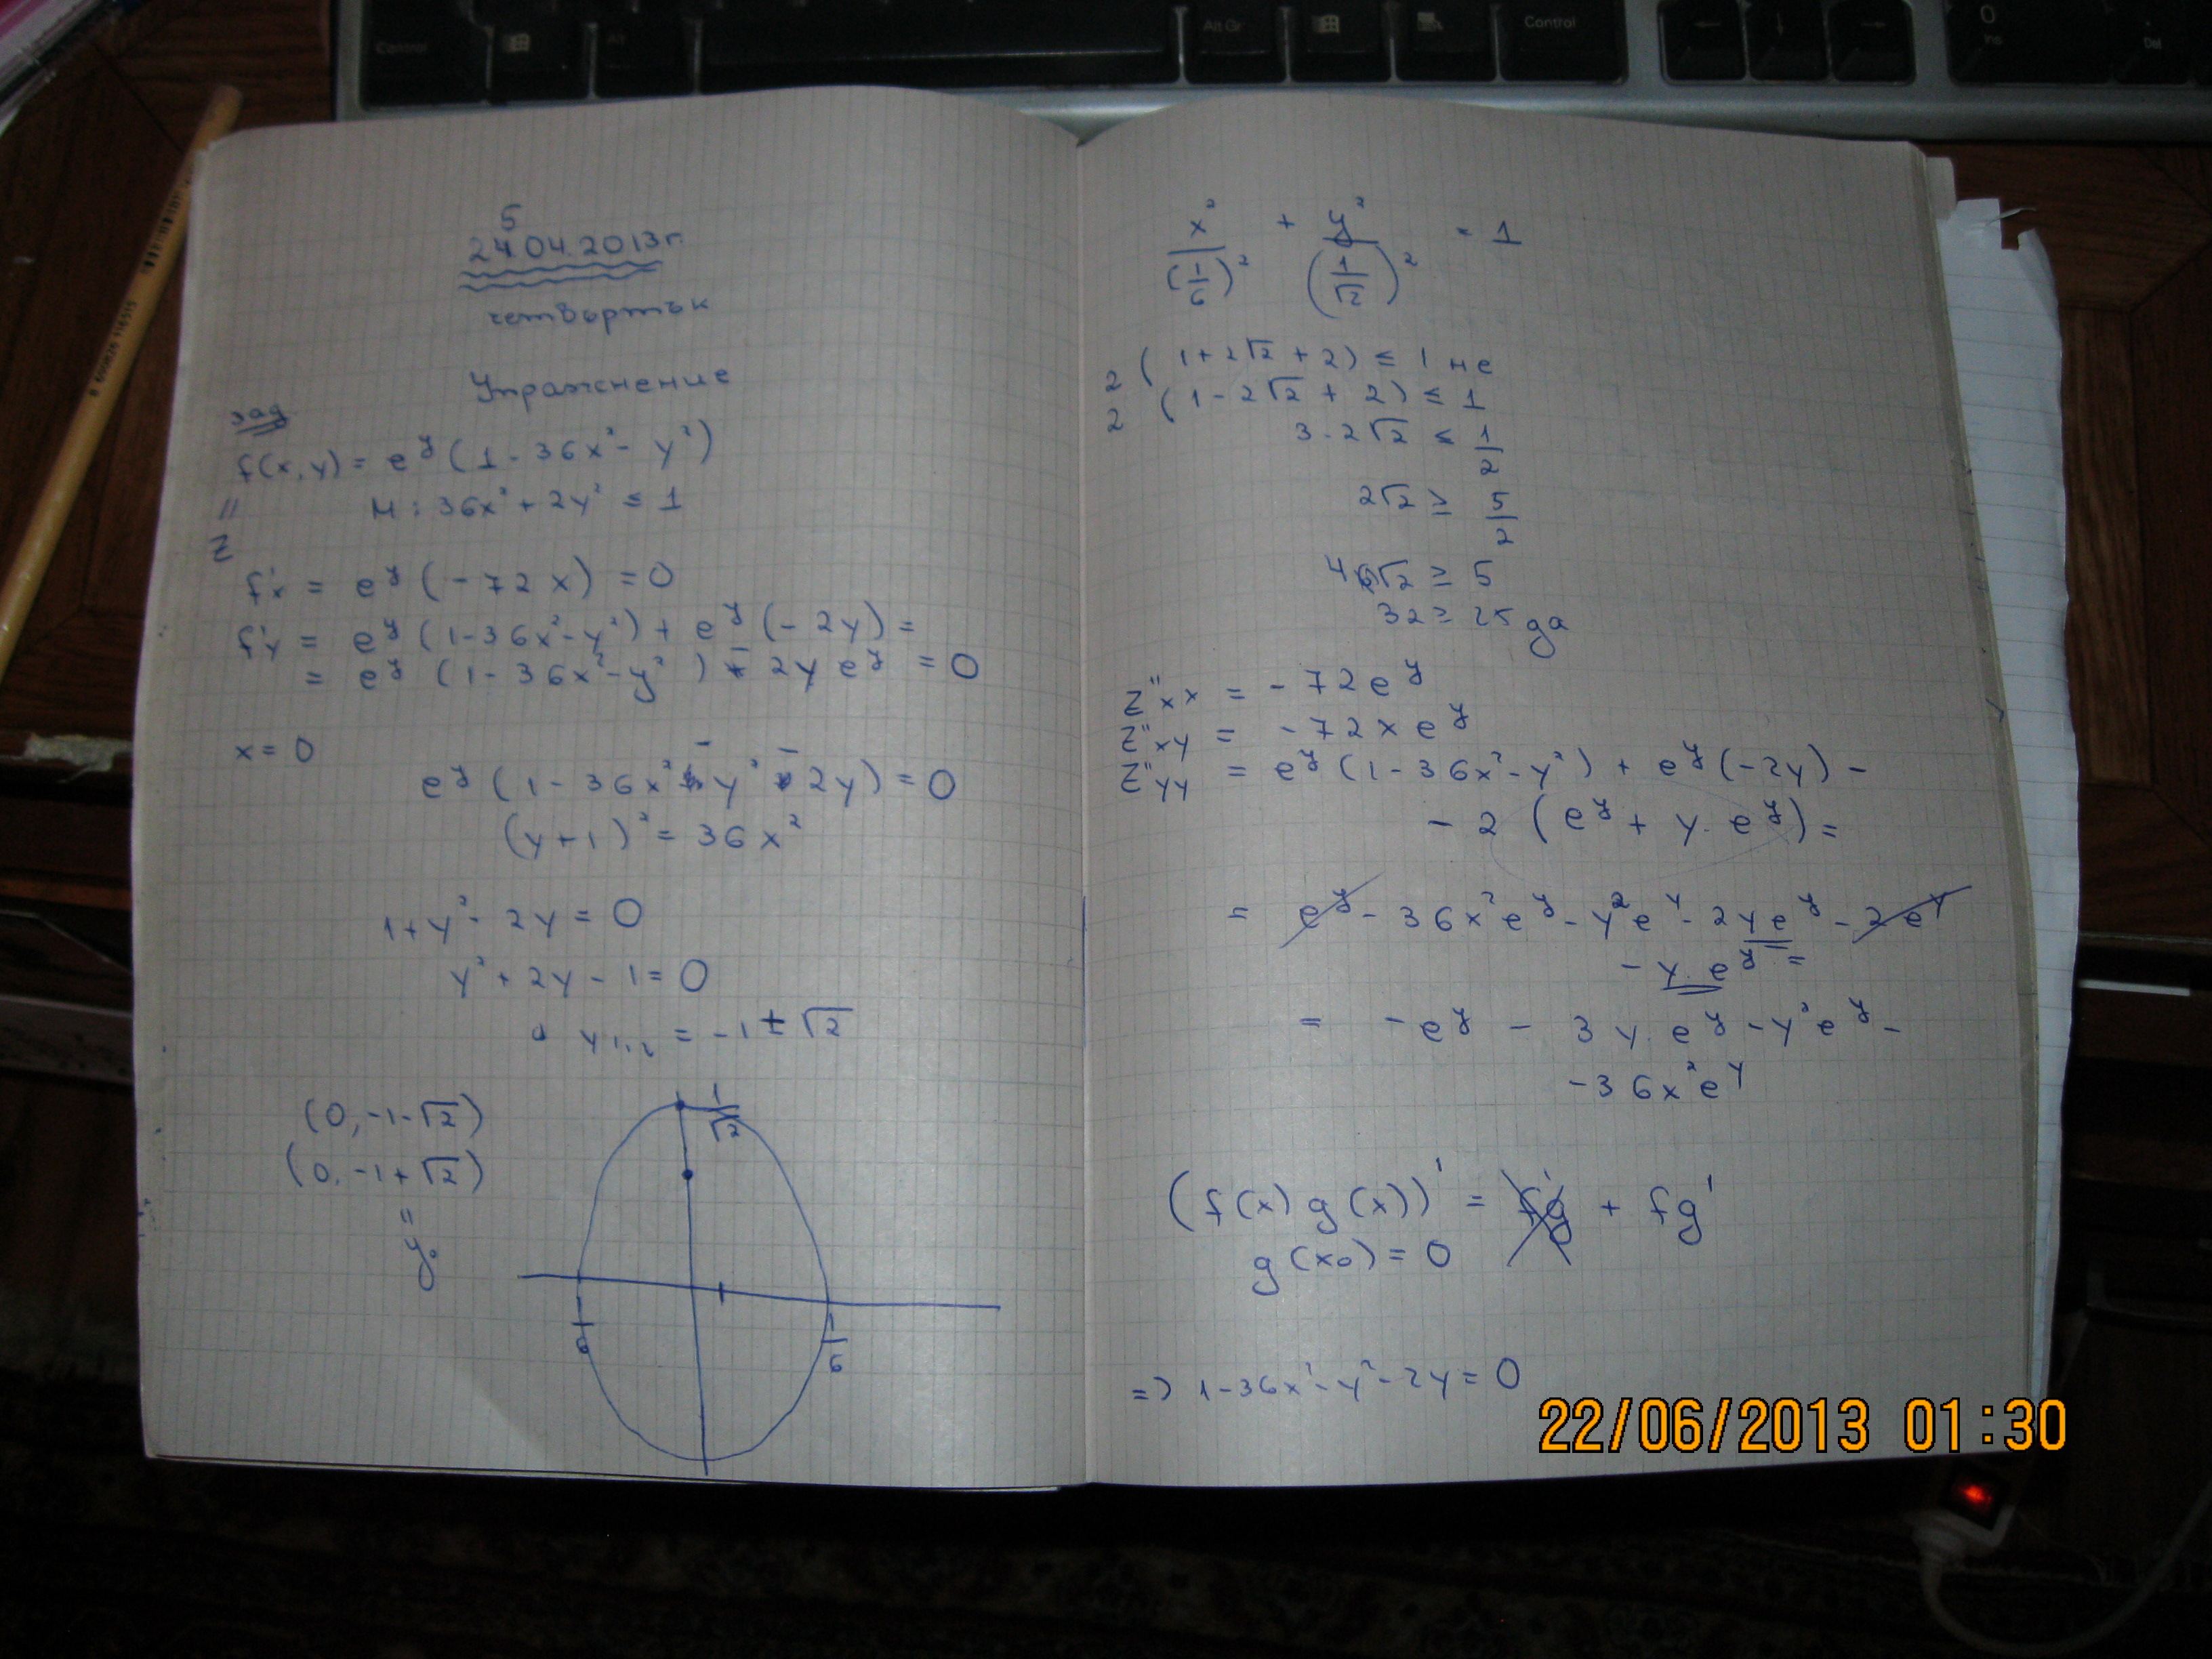 25.04.2013г.
четвъртък
Упражнение
зад
f(x,y) = e^y (1 - 36x² - y²)
=
z
M: 36x² + 2y² ≤ 1
f'x = e^y (-72x) = 0
f'y = e^y (1-36x²-y²) + e^y (-2y) =
= e^y (1-36x²-y²) - 2y e^y = 0
x = 0
e^y (1 - 36x² - y² - 2y) = 0
(y+1)² = 36x²
1+y² - 2y = 0
y² + 2y - 1 = 0
y1,2 = -1 ± √2
(0, -1-√2)
(0, -1+√2)
=
y₀
1/√2
1/6
1/6
x²/(1/6)² + y²/(1/√2)² = 1
2 (1+2√2+2) ≤ 1 не
2 (1-2√2+2) ≤ 1
3-2√2 ≤ 1/2
2√2 ≥ 5/2
4√2 ≥ 5
32 ≥ 25 да
z''xx = -72e^y
z''xy = -72xe^y
z''yy = e^y (1-36x²-y²) + e^y (-2y) -
- 2 (e^y + y.e^y) =
= e^y - 36x²e^y - y²e^y - 2ye^y - 2e^y
- y.e^y =
= -e^y - 3y.e^y - y²e^y -
-36x²e^y
(f(x)g(x))' = f'g + fg'
g(x₀) = 0
=> 1-36x²-y²-2y = 0
22/06/2013 01:30
Control
Alt
Alt Gr
Control
0
Ins
Del